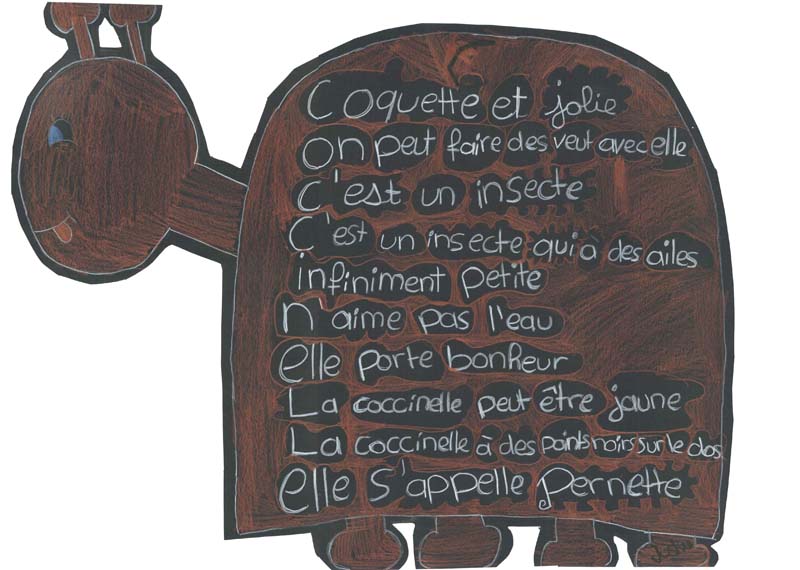 Coquette et jolie
on peut faire des veut avec elle
C'est un insecte
C'est un insecte qui à des ailes
infiniment petite
n'aime pas l'eau
elle porte bonheur
La coccinelle peut être jaune
La coccinelle à des points noirs sur le dos
elle s'appelle pernette